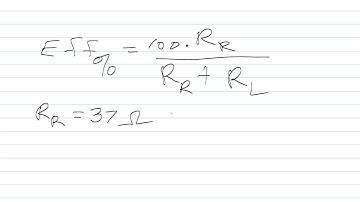 Eff% = 100 · R_R / R_R + R_L
R_R = 37 Ω